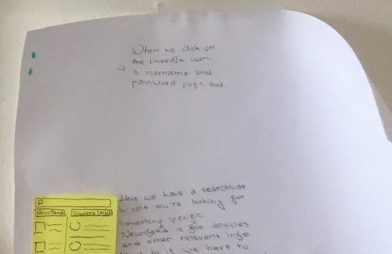 When we click on
the LinkedIn icon
→ a username and
password pops out
Here we have a searchbar
in case you're looking for
something specific.
Newsfeed is for articles
and other relevant info
we have to
Newsfeed